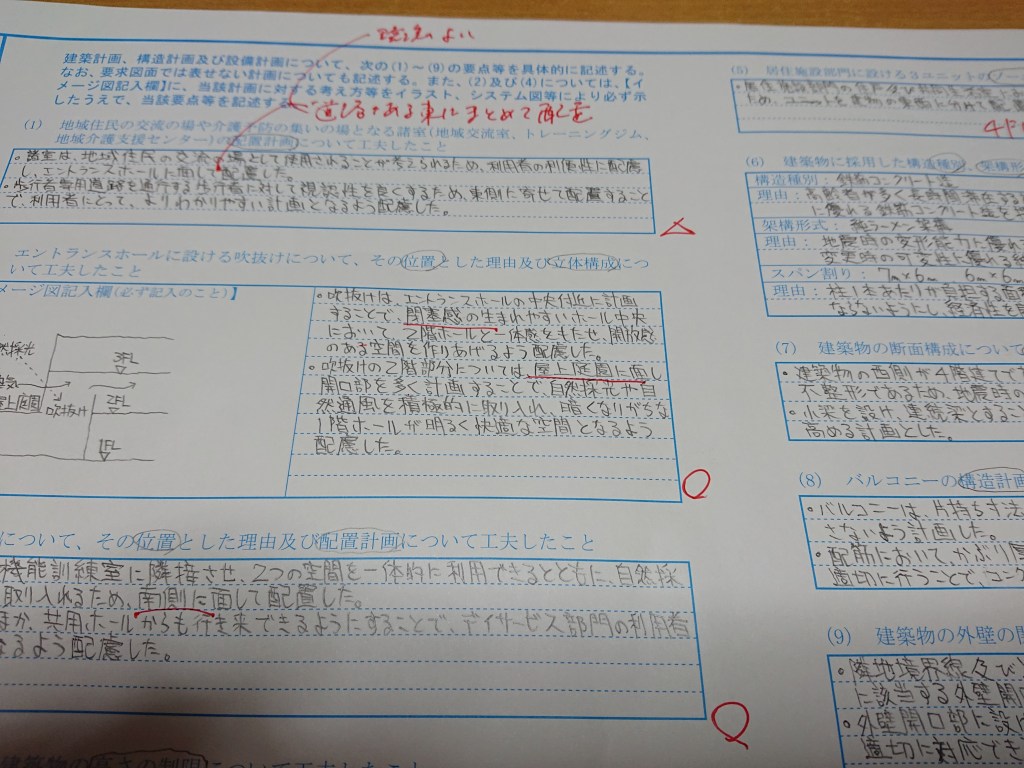 環境のよい
建築計画、構造計画及び設備計画について、次の(1)～(9)の要点等を具体的に記述する。
なお、要求図面では表せない計画についても記述する。また、(2)及び(4)については、【イ
メージ図記入欄】に、当該計画に対する考え方等をイラスト、システム図等により必ず示
したうえで、当該要点等を記述する
道路のある東にまとめて配置
(1) 地域住民の交流の場や介護予防の集いの場となる諸室(地域交流室、トレーニングジム、
地域介護支援センター)の配置計画について工夫したこと
・諸室は、地域住民の交流の場として使用されることが考えられるため、利用者の利便性に配慮
し、エントランスホールに面して配置した。
・歩行者専用道路を通行する歩行者に対して視認性を良くするため、東側に寄せて配置すること
で、利用者にとって、よりわかりやすい計画となるよう配慮した。
エントランスホールに設ける吹抜けについて、その位置とした理由及び立体構成につ
いて工夫したこと
メージ図記入欄(必ず記入のこと)】
然採光
3FL
屋上庭園
吹抜け
2FL
1FL
・吹抜けは、エントランスホールの中央付近に計画
することで、閉塞感の生まれやすいホール中央
において、2階ホールと一体感をもたせ、開放感
のある空間を作りあげるよう配慮した。
・吹抜けの2階部分については、屋上庭園に面し
開口部を多く計画することで自然採光や自
然通風を積極的に取り入れ、暗くなりがちな
1階ホールが明るく快適な空間となるよう
配慮した。
について、その位置とした理由及び配置計画について工夫したこと
機能訓練室に隣接させ、2つの空間を一体的に利用できるとともに、自然採
取り入れるため、南側に面して配置した。
ほか、共用ホールからも行き来できるようにすることで、デイサービス部門の利用者
なるよう配慮した。
建築物の高さの制限について工夫したこと
(5) 居住施設部門に設ける3ユニットの
ため、ユニットを建物の
(6) 建築物に採用した構造種別、架構形
構造種別：鉄筋コンクリート造
理由：高齢者が多く長時間滞在する
に優れる鉄筋コンクリート造を
架構形式：純ラーメン架構
理由：地震時の変形能力に優れ
変更時の可変性に優れる
スパン割り：7m×6m 6m×6m
理由：柱1本あたりが負担する面
ならないようにし、経済性を
(7) 建築物の断面構成について
・建築物の西側が4階建てで
不整形であるため、地震時の
・小梁を設け、連続梁とすること
高める計画とした。
(8) バルコニーの構造計画
・バルコニーは、片持ち寸法
さないよう計画した。
・配筋において、かぶり厚
適切に行うことで、コンク
(9) 建築物の外壁の開
・隣地境界線及び
に該当する外壁開
・外壁開口部に設
適切に対応でき